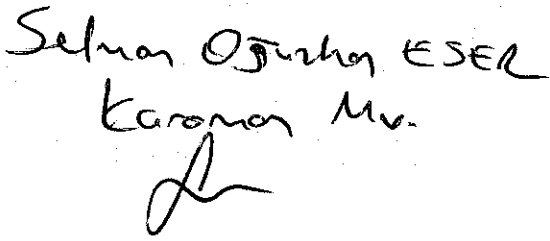 Selman Oğuzhan ESER
Karaman Mv.